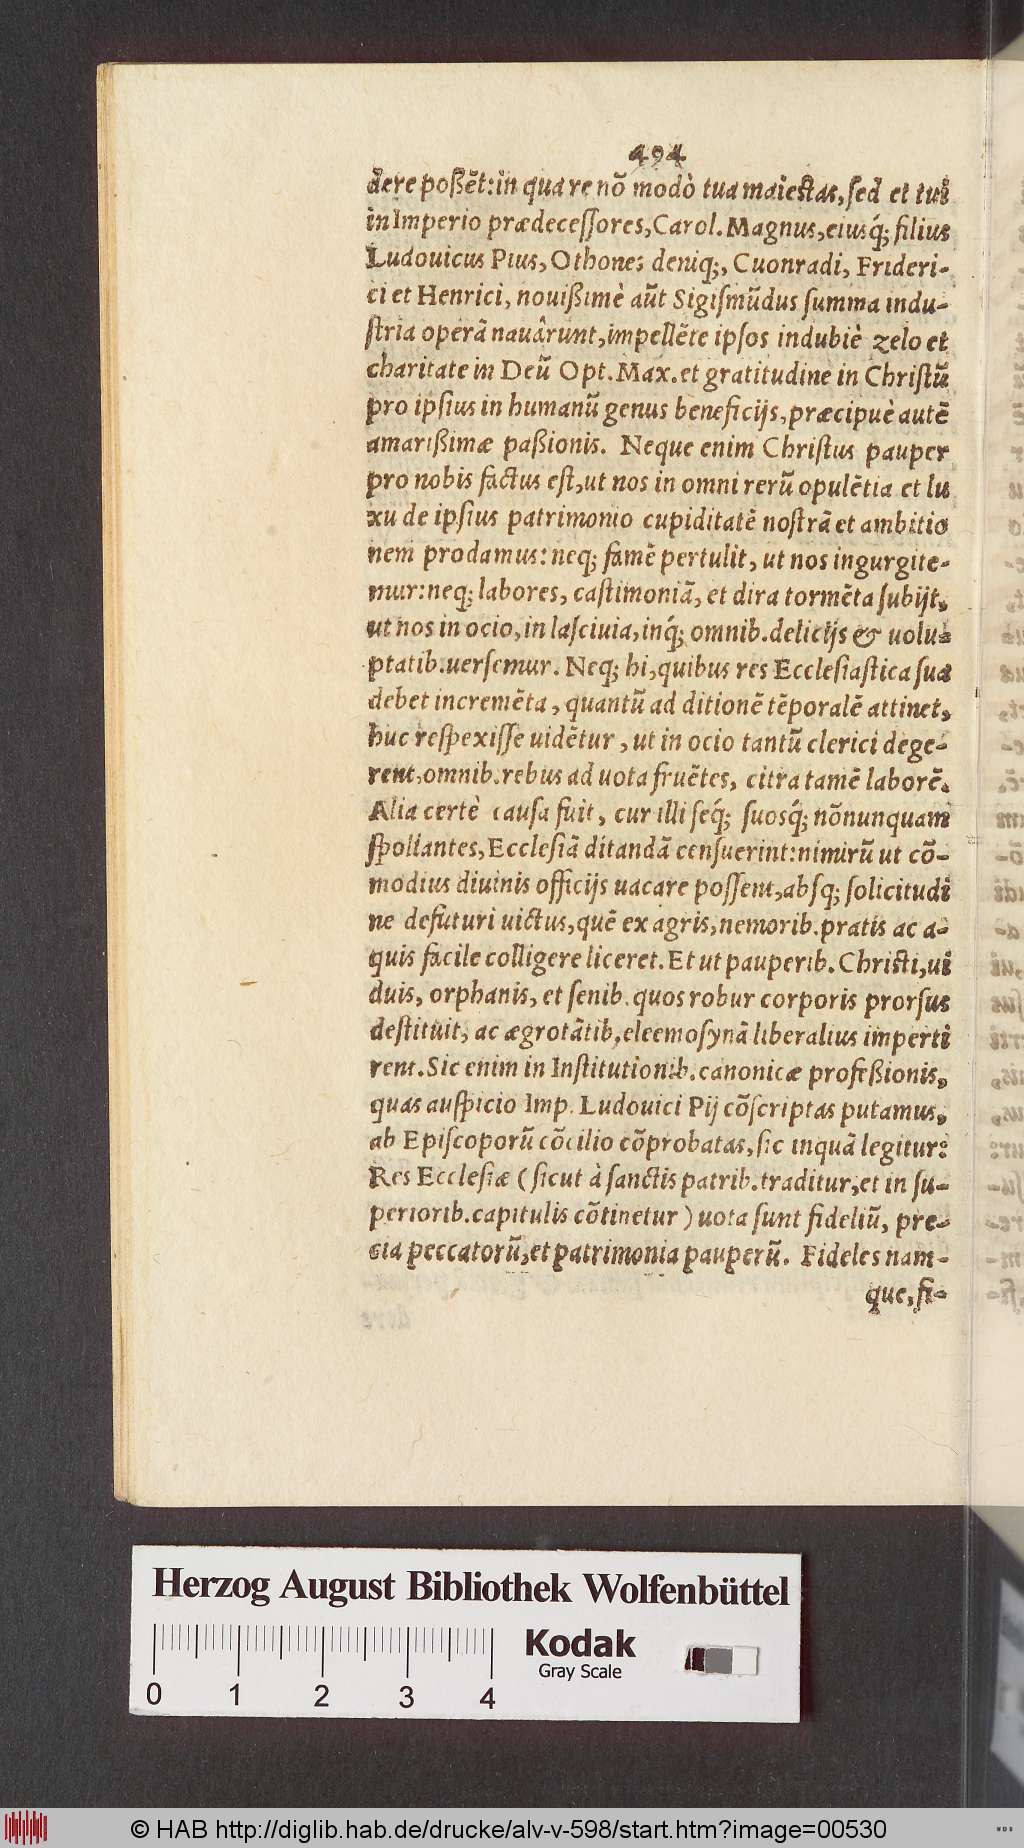 494
dere poßẽt: in qua re nõ modò tua maiestas, sed et tui
in Imperio prædecessores, Carol. Magnus, eiusq́; filius
Ludouicus Pius, Othones deniq;, Cuonradi, Frideri-
ci et Henrici, nouißimè aũt Sigismũdus summa indu-
stria operã nauârunt, impellẽte ipsos indubiè zelo et
charitate in Deũ Opt. Max. et gratitudine in Christũ
pro ipsius in humanũ genus beneficijs, præcipuè autẽ
amarißimæ paßionis. Neque enim Christus pauper
pro nobis factus est, ut nos in omni rerũ opulẽtia et lu
xu de ipsius patrimonio cupiditatẽ nostrã et ambitio
nem prodamus: neq; famẽ pertulit, ut nos ingurgite-
mur: neq; labores, castimoniã, et dira tormẽta subijt,
ut nos in ocio, in lasciuia, inq́; omnib. delicijs & uolu-
ptatib. uersemur. Neq; hi, quibus res Ecclesiastica sua
debet incremẽta, quantũ ad ditionẽ tẽporalẽ attinet,
huc respexisse uidẽtur, ut in ocio tantũ clerici dege-
rent, omnib. rebus ad uota fruẽtes, citra tamẽ laborẽ.
Alia certè causa fuit, cur illi seq́; suosq́; nõnunquam
spoliantes, Ecclesiã ditandã censuerint: nimirũ ut cõ-
modius diuinis officijs uacare possent, absq; solicitudi
ne defuturi uictus, quẽ ex agris, nemorib. pratis ac a-
quis facile colligere liceret. Et ut pauperib. Christi, ui
duis, orphanis, et senib. quos robur corporis prorsus
destituit, ac ægrotãtib, eleemosynã liberalius imperti
rent. Sic enim in Institutionib. canonicæ profeßionis,
quas auspicio Imp. Ludouici Pij cõscriptas putamus,
ab Episcoporũ cõcilio cõprobatas, sic inquã legitur:
Res Ecclesiæ (sicut à sanctis patrib. traditur, et in su-
periorib. capitulis cõtinetur) uota sunt fideliũ, pre-
cia peccatorũ, et patrimonia pauperũ. Fideles nam-
que, fi-
Herzog August Bibliothek Wolfenbüttel
Kodak
Gray Scale
0 1 2 3 4
© HAB http://diglib.hab.de/drucke/alv-v-598/start.htm?image=00530